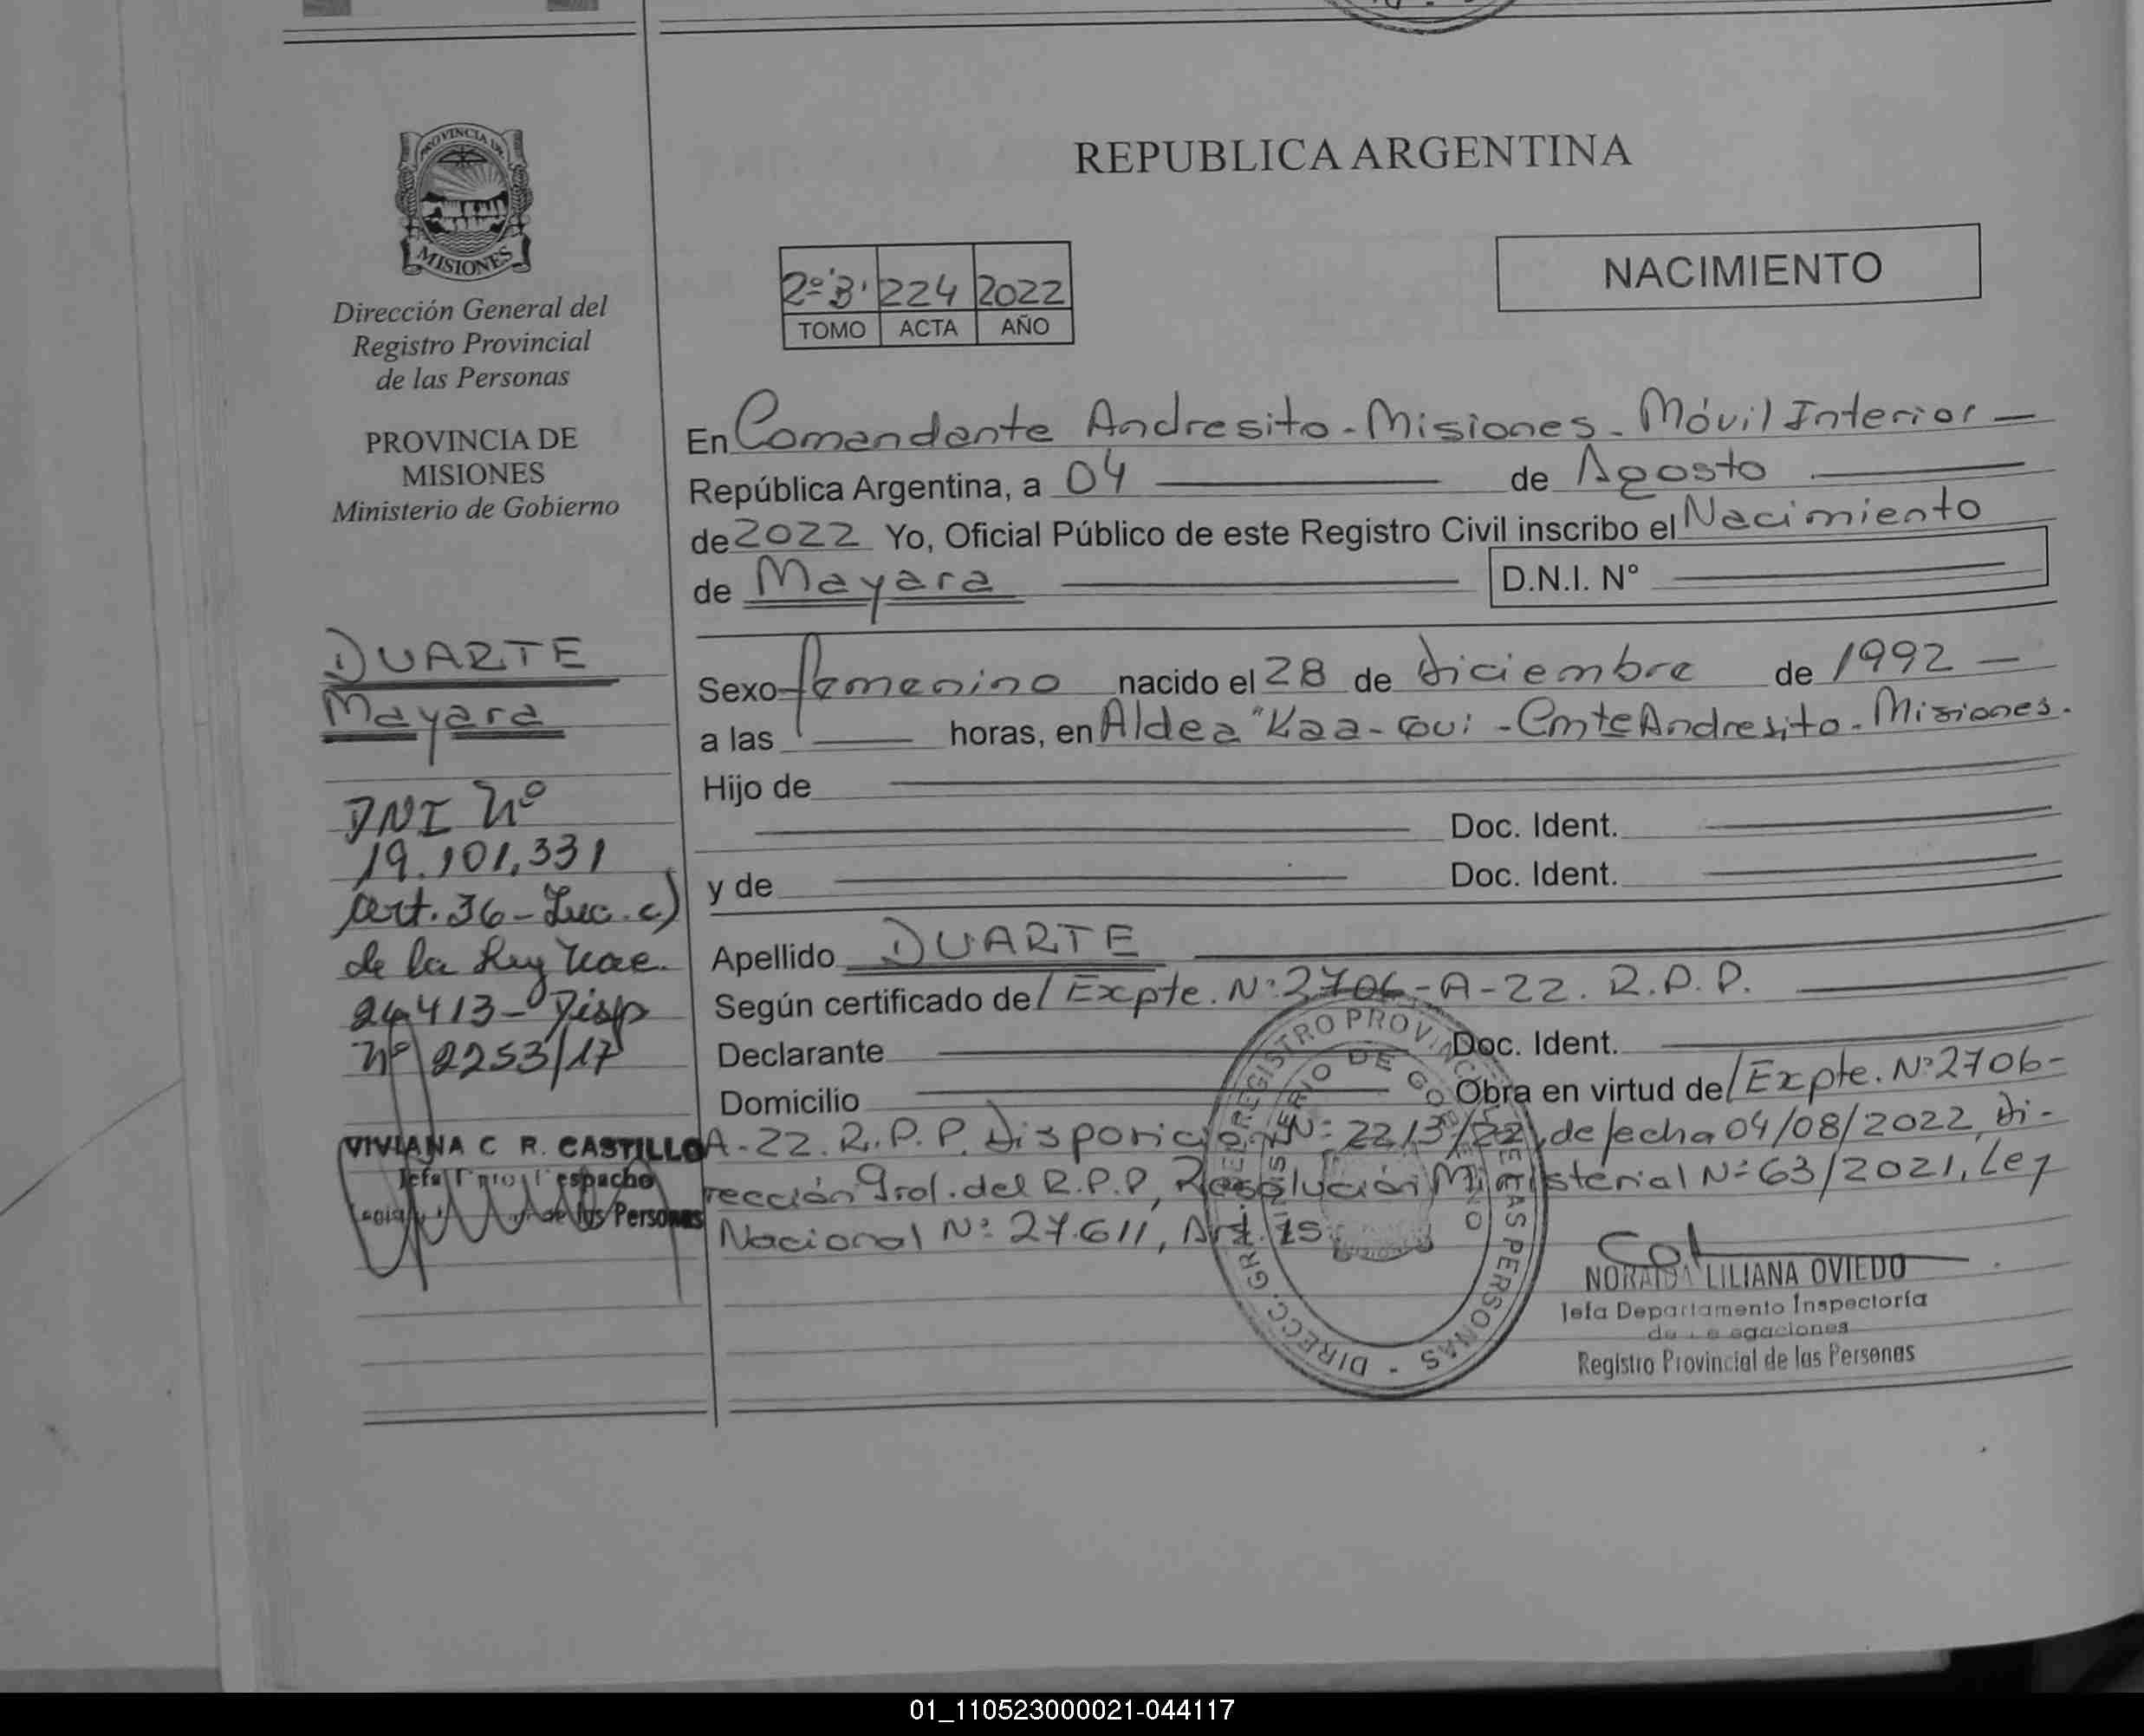 PROVINCIA DE
MISIONES
Dirección General del
Registro Provincial
de las Personas
PROVINCIA DE
MISIONES
Ministerio de Gobierno
DUARTE
Mayara
DNI Nº
19.101.331
art. 36 - Inc. c)
de la Ley Nac.
26413 - Disp
nº 2253/17
VIVIANA C R. CASTILLO
Jefa Despacho
de las Personas
REPUBLICA ARGENTINA
NACIMIENTO
2º"B" 224 2022
TOMO ACTA AÑO
En Comandante Andresito - Misiones - Móvil Interior —
República Argentina, a 04 — de Agosto —
de 2022 Yo, Oficial Público de este Registro Civil inscribo el Nacimiento
de Mayara — D.N.I. Nº —
Sexo femenino nacido el 28 de diciembre de 1992 —
a las — horas, en Aldea "Kaa-Cui - Cmte Andresito - Misiones.
Hijo de —
— Doc. Ident. —
y de — Doc. Ident. —
Apellido DUARTE —
Según certificado de/ Expte. Nº 2706-A-22. R.P.P. —
Declarante — Doc. Ident. —
Domicilio — Obra en virtud de/ Expte. Nº 2706-
A-22. R.P.P. Disposición Nº 2213/22, de fecha 04/08/2022, Di-
rección Gral. del R.P.P, Resolución Ministerial Nº 63/2021, Ley
Nacional Nº 27.611, Art. 15.
DIRECC. GRAL. DEL REGISTRO PROVINCIAL DE LAS PERSONAS -
MINISTERIO DE GOBIERNO
NORAIDA LILIANA OVIEDO
Jefa Departamento Inspectoría
de Delegaciones
Registro Provincial de las Personas
01_110523000021-044117